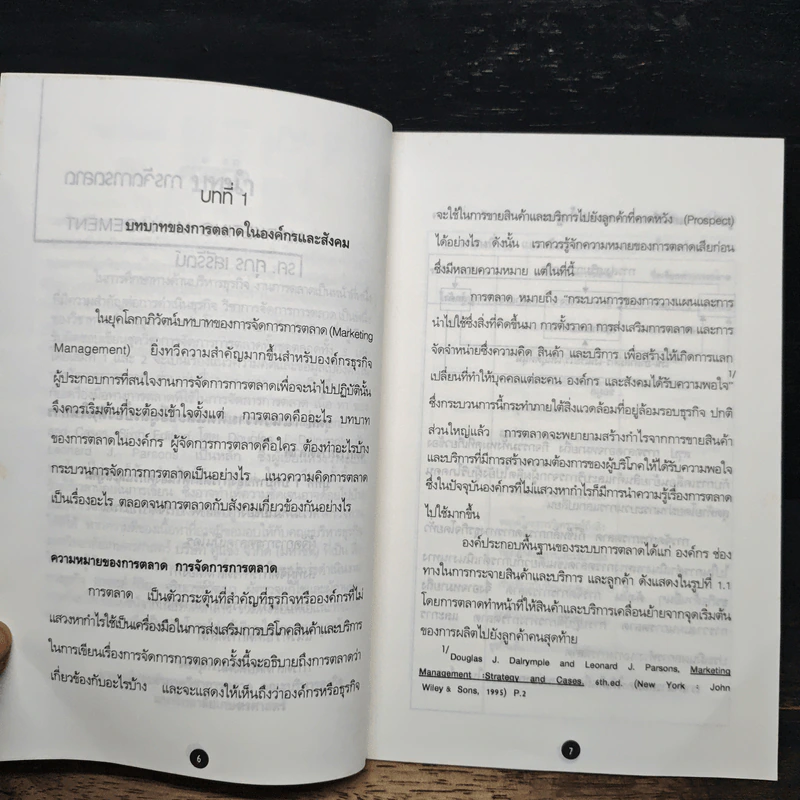 บทที่ 1
บทบาทของการตลาดในองค์กรและสังคม
ในยุคโลกาภิวัตน์บทบาทของการจัดการการตลาด (Marketing
Management) ยิ่งทวีความสำคัญมากขึ้นสำหรับองค์กรธุรกิจ
ผู้ประกอบการที่สนใจงานการจัดการการตลาดเพื่อจะนำไปปฏิบัตินั้น
จึงควรเริ่มต้นที่จะต้องเข้าใจตั้งแต่ การตลาดคืออะไร บทบาท
ของการตลาดในองค์กร ผู้จัดการการตลาดคือใคร ต้องทำอะไรบ้าง
กระบวนการจัดการการตลาดเป็นอย่างไร แนวความคิดการตลาด
เป็นเรื่องอะไร ตลอดจนการตลาดกับสังคมเกี่ยวข้องกันอย่างไร
ความหมายของการตลาด การจัดการการตลาด
การตลาด เป็นตัวกระตุ้นที่สำคัญที่ธุรกิจหรือองค์กรที่ไม่
แสวงหากำไรใช้เป็นเครื่องมือในการส่งเสริมการบริโภคสินค้าและบริการ
ในการเขียนเรื่องการจัดการการตลาดครั้งนี้จะอธิบายถึงการตลาดว่า
เกี่ยวข้องกับอะไรบ้าง และจะแสดงให้เห็นถึงว่าองค์กรหรือธุรกิจ
6
จะใช้ในการขายสินค้าและบริการไปยังลูกค้าที่คาดหวัง (Prospect)
ได้อย่างไร ดังนั้น เราควรรู้จักความหมายของการตลาดเสียก่อน
ซึ่งมีหลายความหมาย แต่ในที่นี้
การตลาด หมายถึง "กระบวนการของการวางแผนและการ
นำไปใช้ซึ่งสิ่งที่คิดขึ้นมา การตั้งราคา การส่งเสริมการตลาด และการ
จัดจำหน่ายซึ่งความคิด สินค้า และบริการ เพื่อสร้างให้เกิดการแลก
เปลี่ยนที่ทำให้บุคคลแต่ละคน องค์กร และสังคมได้รับความพอใจ" 1/
ซึ่งกระบวนการนี้กระทำภายใต้สิ่งแวดล้อมที่อยู่ล้อมรอบธุรกิจ ปกติ
ส่วนใหญ่แล้ว การตลาดจะพยายามสร้างกำไรจากการขายสินค้า
และบริการที่มีการสร้างความต้องการของผู้บริโภคให้ได้รับความพอใจ
ซึ่งในปัจจุบันองค์กรที่ไม่แสวงหากำไรก็มีการนำความรู้เรื่องการตลาด
ไปใช้มากขึ้น
องค์ประกอบพื้นฐานของระบบการตลาดได้แก่ องค์กร ช่อง
ทางในการกระจายสินค้าและบริการ และลูกค้า ดังแสดงในรูปที่ 1.1
โดยการตลาดทำหน้าที่ให้สินค้าและบริการเคลื่อนย้ายจากจุดเริ่มต้น
ของการผลิตไปยังลูกค้าคนสุดท้าย
1/ Douglas J. Dalrymple and Leonard J. Parsons, Marketing
Management :Strategy and Cases, 6th.ed. (New York : John
Wiley & Sons, 1995) P.2
7